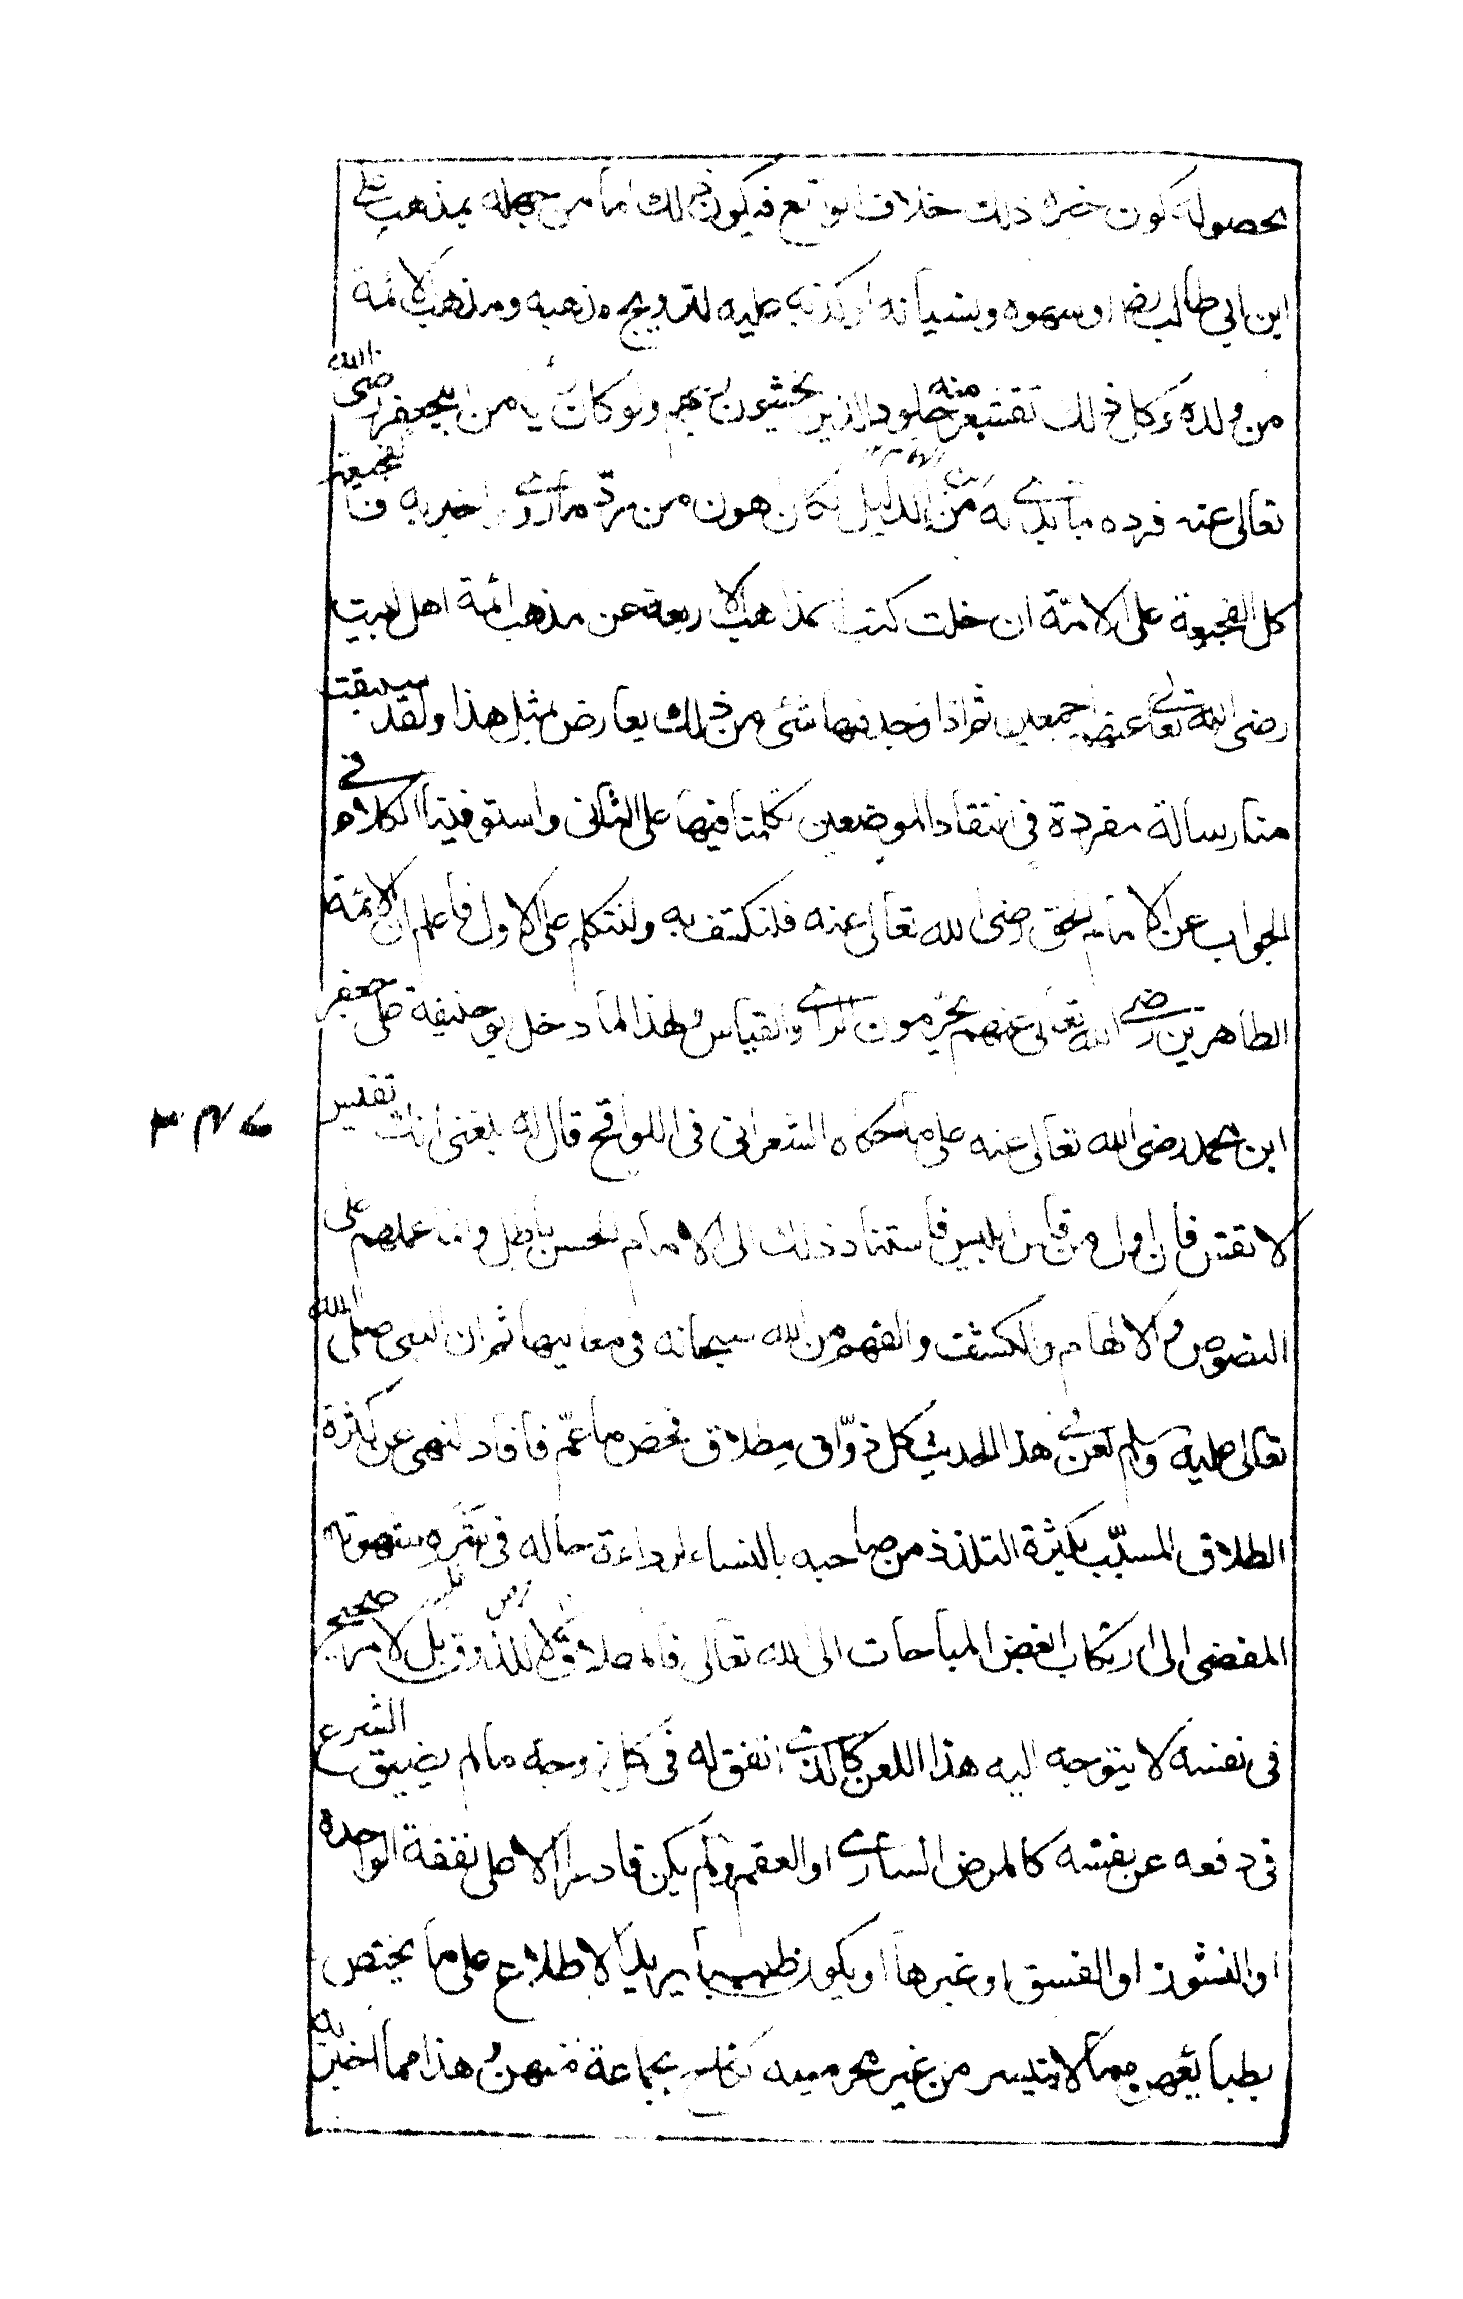 بحصوله كون خبره ذلك خلاف الواقع فيكون ذلك اما من جهله بمذهب علي
ابن ابي طالب رضـ او سهوه ونسيانه او كذبه عليه لترويج مذهبه ومذهب الائمة
من ولده وكل ذلك تقشعر منه جلود الذين يخشون ربهم ولو كان يأمن ابي جعفر رضى الله
تعالى عنه فرده ما بدى له من الدليل لكان اهون من رد ما روى اخبر به فا لفجيعة
كل الفجيعة على الامة ان خلت كتب المذاهب الاربعة عن مذهب ائمة اهل البيت
رضى الله تعالى عنهم اجمعين ثم اذا وجد فيها شئ من ذلك يعارض بمثل هذا ولقد سبقت
منا رسالة مفردة في انتقاد الموضعين تكلمنا فيها على الثانى واستوفينا الكلام في
الجواب عن الامام الحق رضى الله تعالى عنه فلنكتف به ولنتكلم على الاول فاعلم ان الائمة
الطاهرين رضى الله تعالى عنهم يحرمون الراى والقياس ولهذا لما دخل ابو حنيفة على جعفر
ابن محمد رضى الله تعالى عنه على ما حكاه الشعرانى فى اللواقح قال له بلغنى انك تقيس
لا تقس فان اول من قاس ابليس فاستناد ذلك الى الامام الحسن باطل وانما عملهم على
النصوص والالهام والكشف والفهم من الله سبحانه في معانيها ثم ان النبي صلى الله
تعالى عليه وسلم لعن في هذا الحديث كل ذوّاق مطلاق فخص ما عمّ فافاد النهى عن كثرة
الطلاق المسبّب بكثرة التلذذ من صاحبه بالنساء لرداءة حاله في شره شهوته
المفضى الى ارتكاب ابغض المباحات الى الله تعالى فالمطلاق لا للذوق بل لامر صحيح
في نفسه لا يتوجه اليه هذا اللعن كالذى اتفق له في كل زوجة ما لم يضيق الشرع
في دفعه عن نفسه كالمرض السارى او العقم ولم يكن قادرا الا على نفقة الواحدة
او النشوز او الفسق او غيرها او يكون طبيبا يريد الاطلاع على ما يختص
بطبائعهن مما لا يتيسر من غير محرميته بجماعة منهن وهذا مما اخبر به
٣٨٧